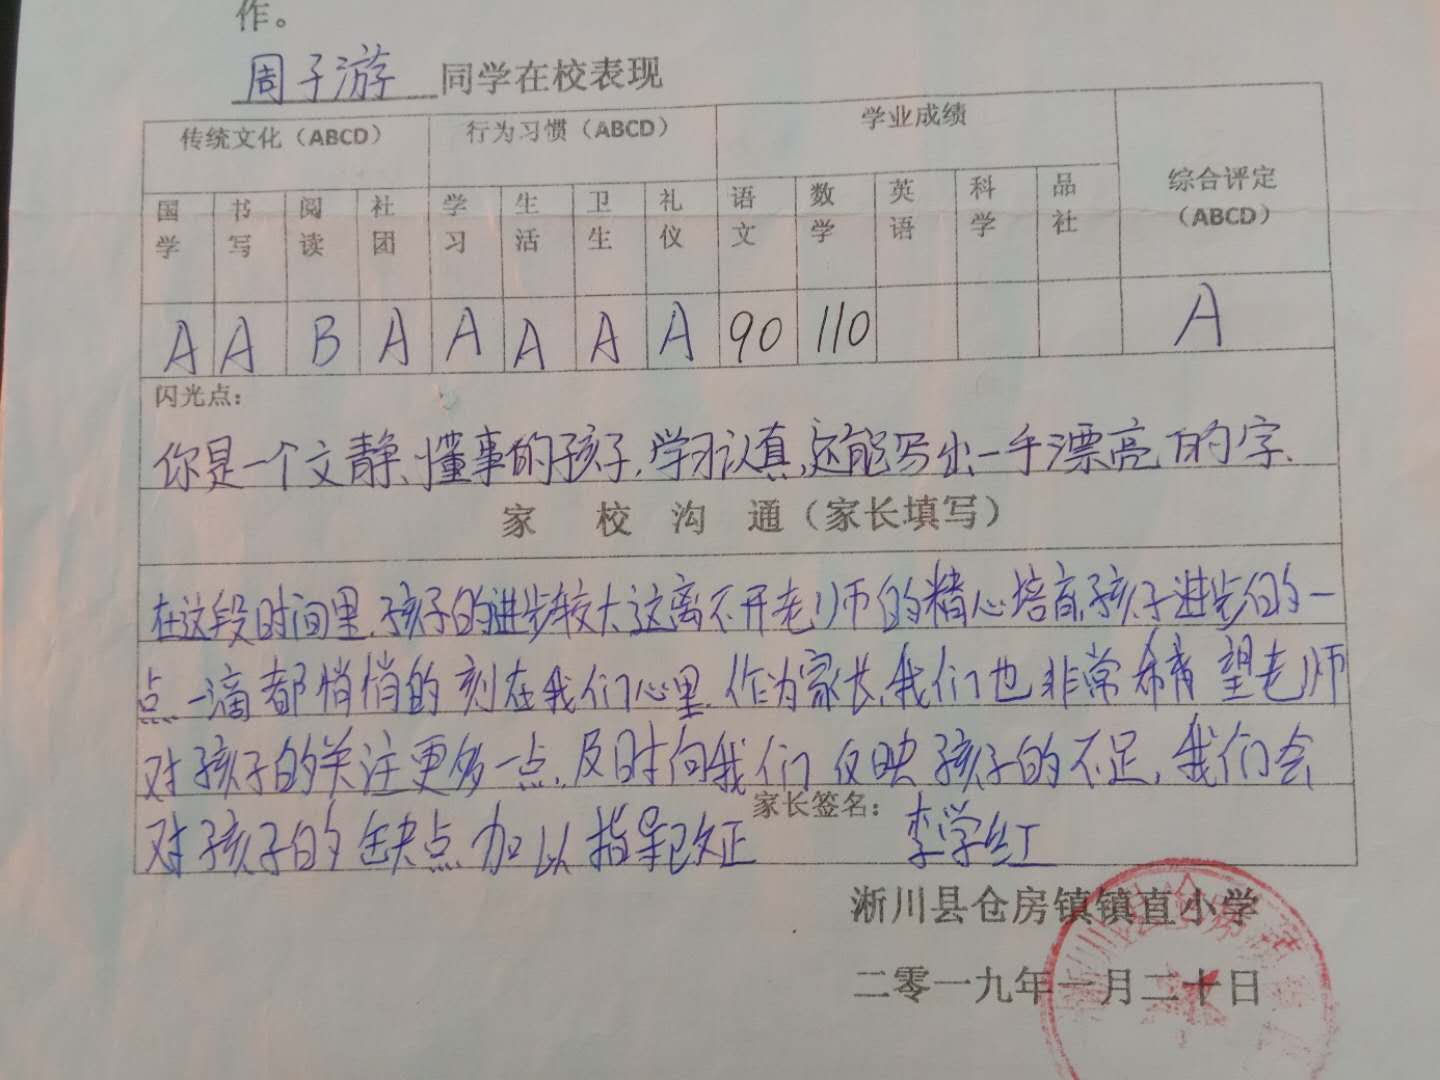 作。
周子游 同学在校表现
传统文化（ABCD） 行为习惯（ABCD） 学业成绩 综合评定（ABCD）
国学 书写 阅读 社团 学习 生活 卫生 礼仪 语文 数学 英语 科学 品社
A A B A A A A A 90 110 A
闪光点：
你是一个文静、懂事的孩子，学习认真，还能写出一手漂亮的字、
家 校 沟 通（家长填写）
在这段时间里，孩子的进步较大这离不开老师的精心培育，孩子进步的一
点一滴都悄悄的刻在我们心里，作为家长，我们也非常希望老师
对孩子的关注更多一点，及时向我们反映孩子的不足，我们会
对孩子的缺点加以指导改正 家长签名： 李学红
淅川县仓房镇镇直小学
二零一九年一月二十日